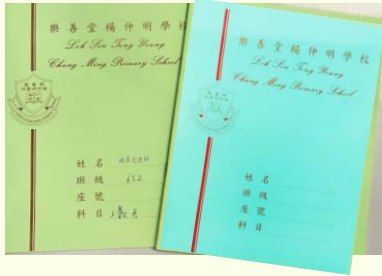 樂善堂楊仲明學校
Lok Sin Tong Young
Chung Ming Primary School
姓名
班級
座號
科目
樂善堂楊仲明學校
Lok Sin Tong Young
Chung Ming Primary School
姓名
班級
座號
科目